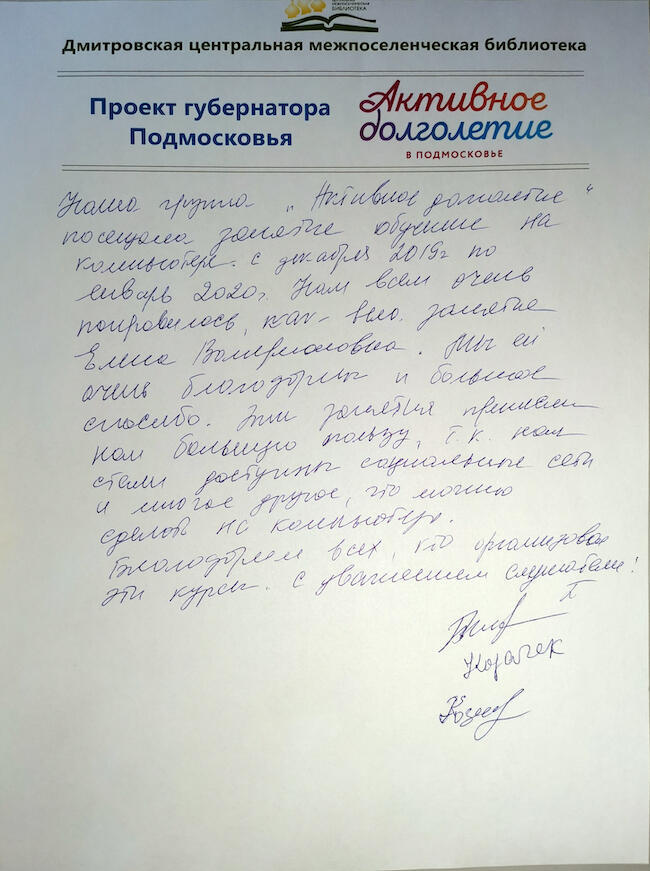 МЕЖПОСЕЛЕНЧЕСКАЯ
БИБЛИОТЕКА
Дмитровская центральная межпоселенческая библиотека
Проект губернатора
Подмосковья
Активное
долголетие
В ПОДМОСКОВЬЕ
Наша группа „Активное долголетие“
посещала занятие обучение на
компьютере с декабря 2019г по
январь 2020г. Нам всем очень
понравилось, как вела занятие
Елена Валериановна. Мы ей
очень благодарны и большое
спасибо. Эти занятия принесли
нам большую пользу, т.к. нам
стали доступны социальные сети
и многое другое, что можно
сделать на компьютере.
Благодарим всех, кто организовал
эти курсы. С уважением слушатели!